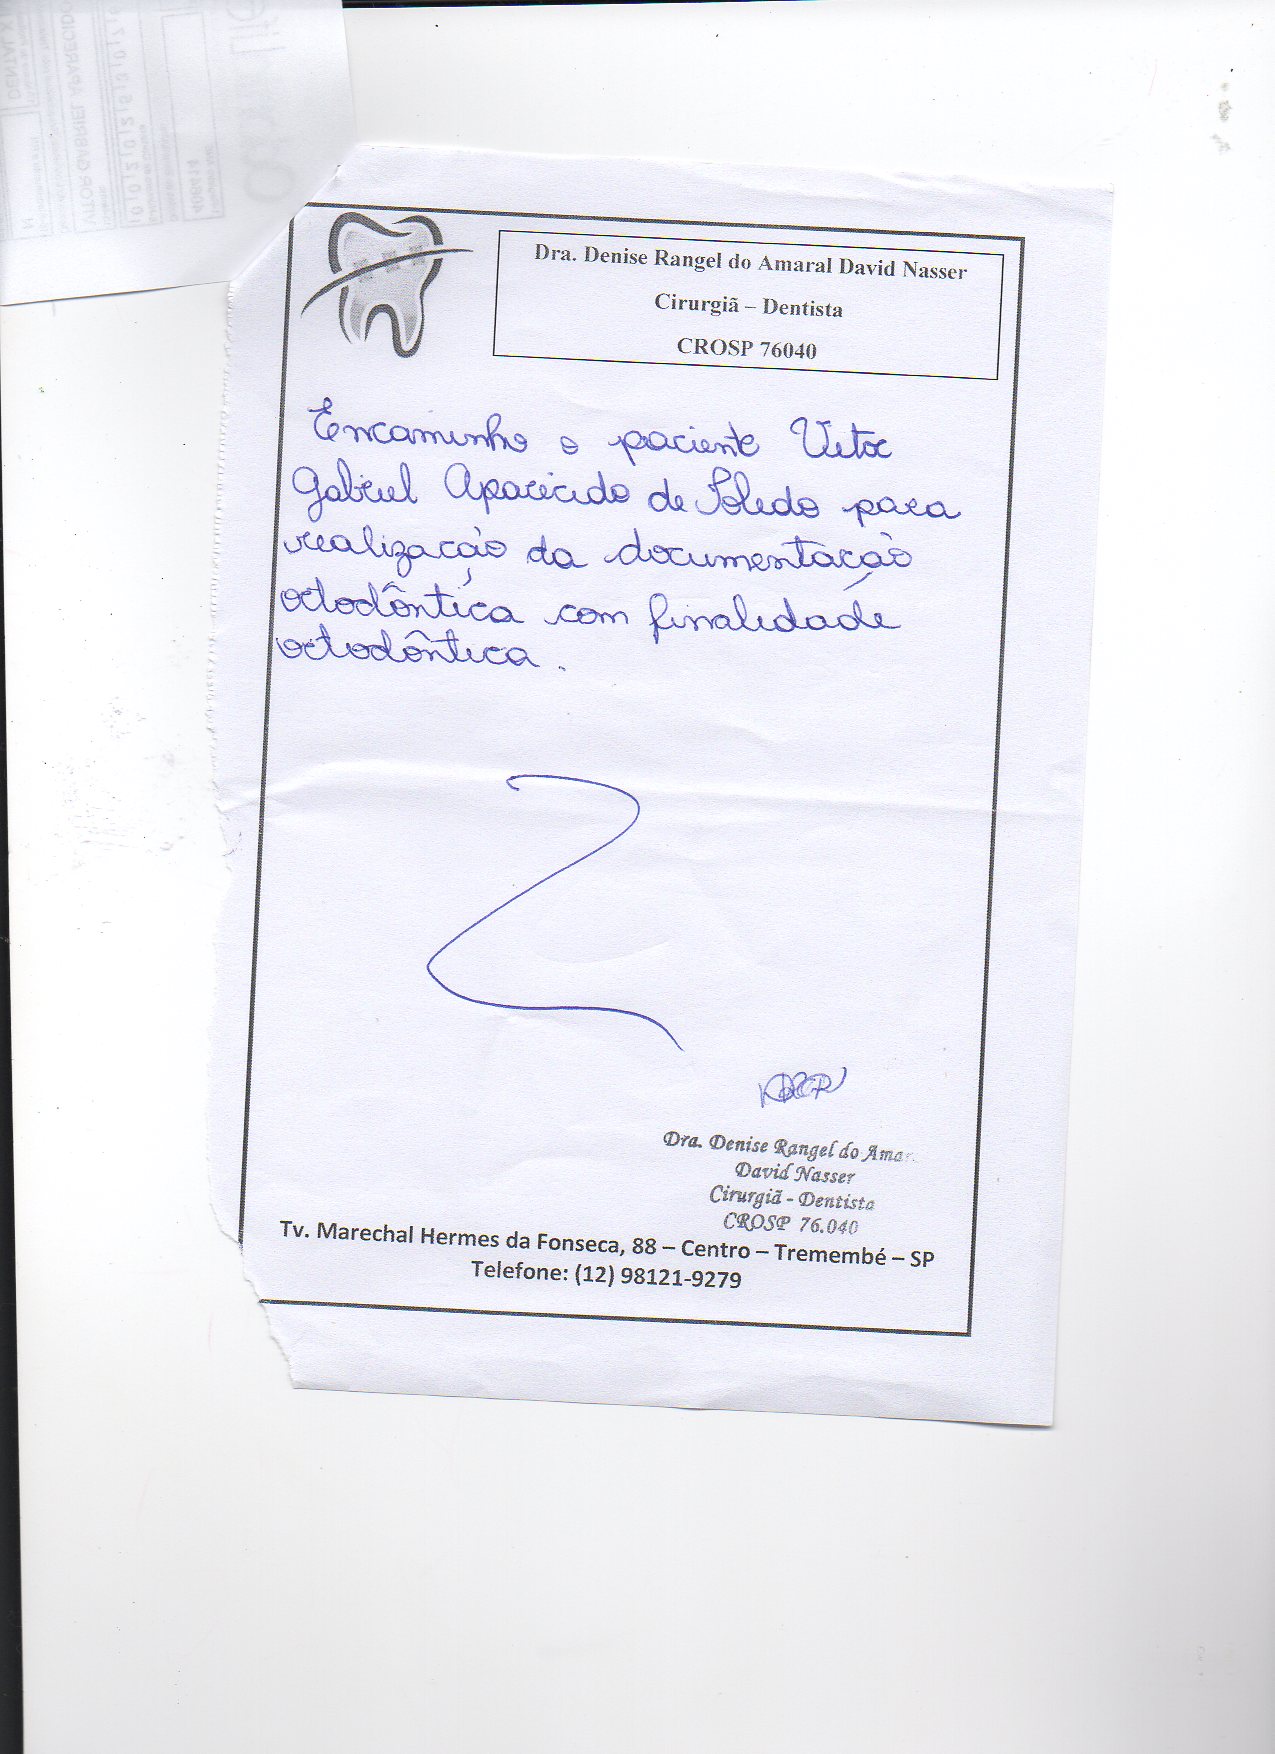 Dra. Denise Rangel do Amaral David Nasser
Cirurgiã – Dentista
CROSP 76040
Encaminho o paciente Vitor
Gabriel Aparecido de Toledo para
realização da documentação
ortodôntica com finalidade
ortodôntica.
Dra. Denise Rangel do Amar
David Nasser
Cirurgiã - Dentista
CROSP 76.040
Tv. Marechal Hermes da Fonseca, 88 – Centro – Tremembé – SP
Telefone: (12) 98121-9279
VITOR GABRIEL APARECIDO